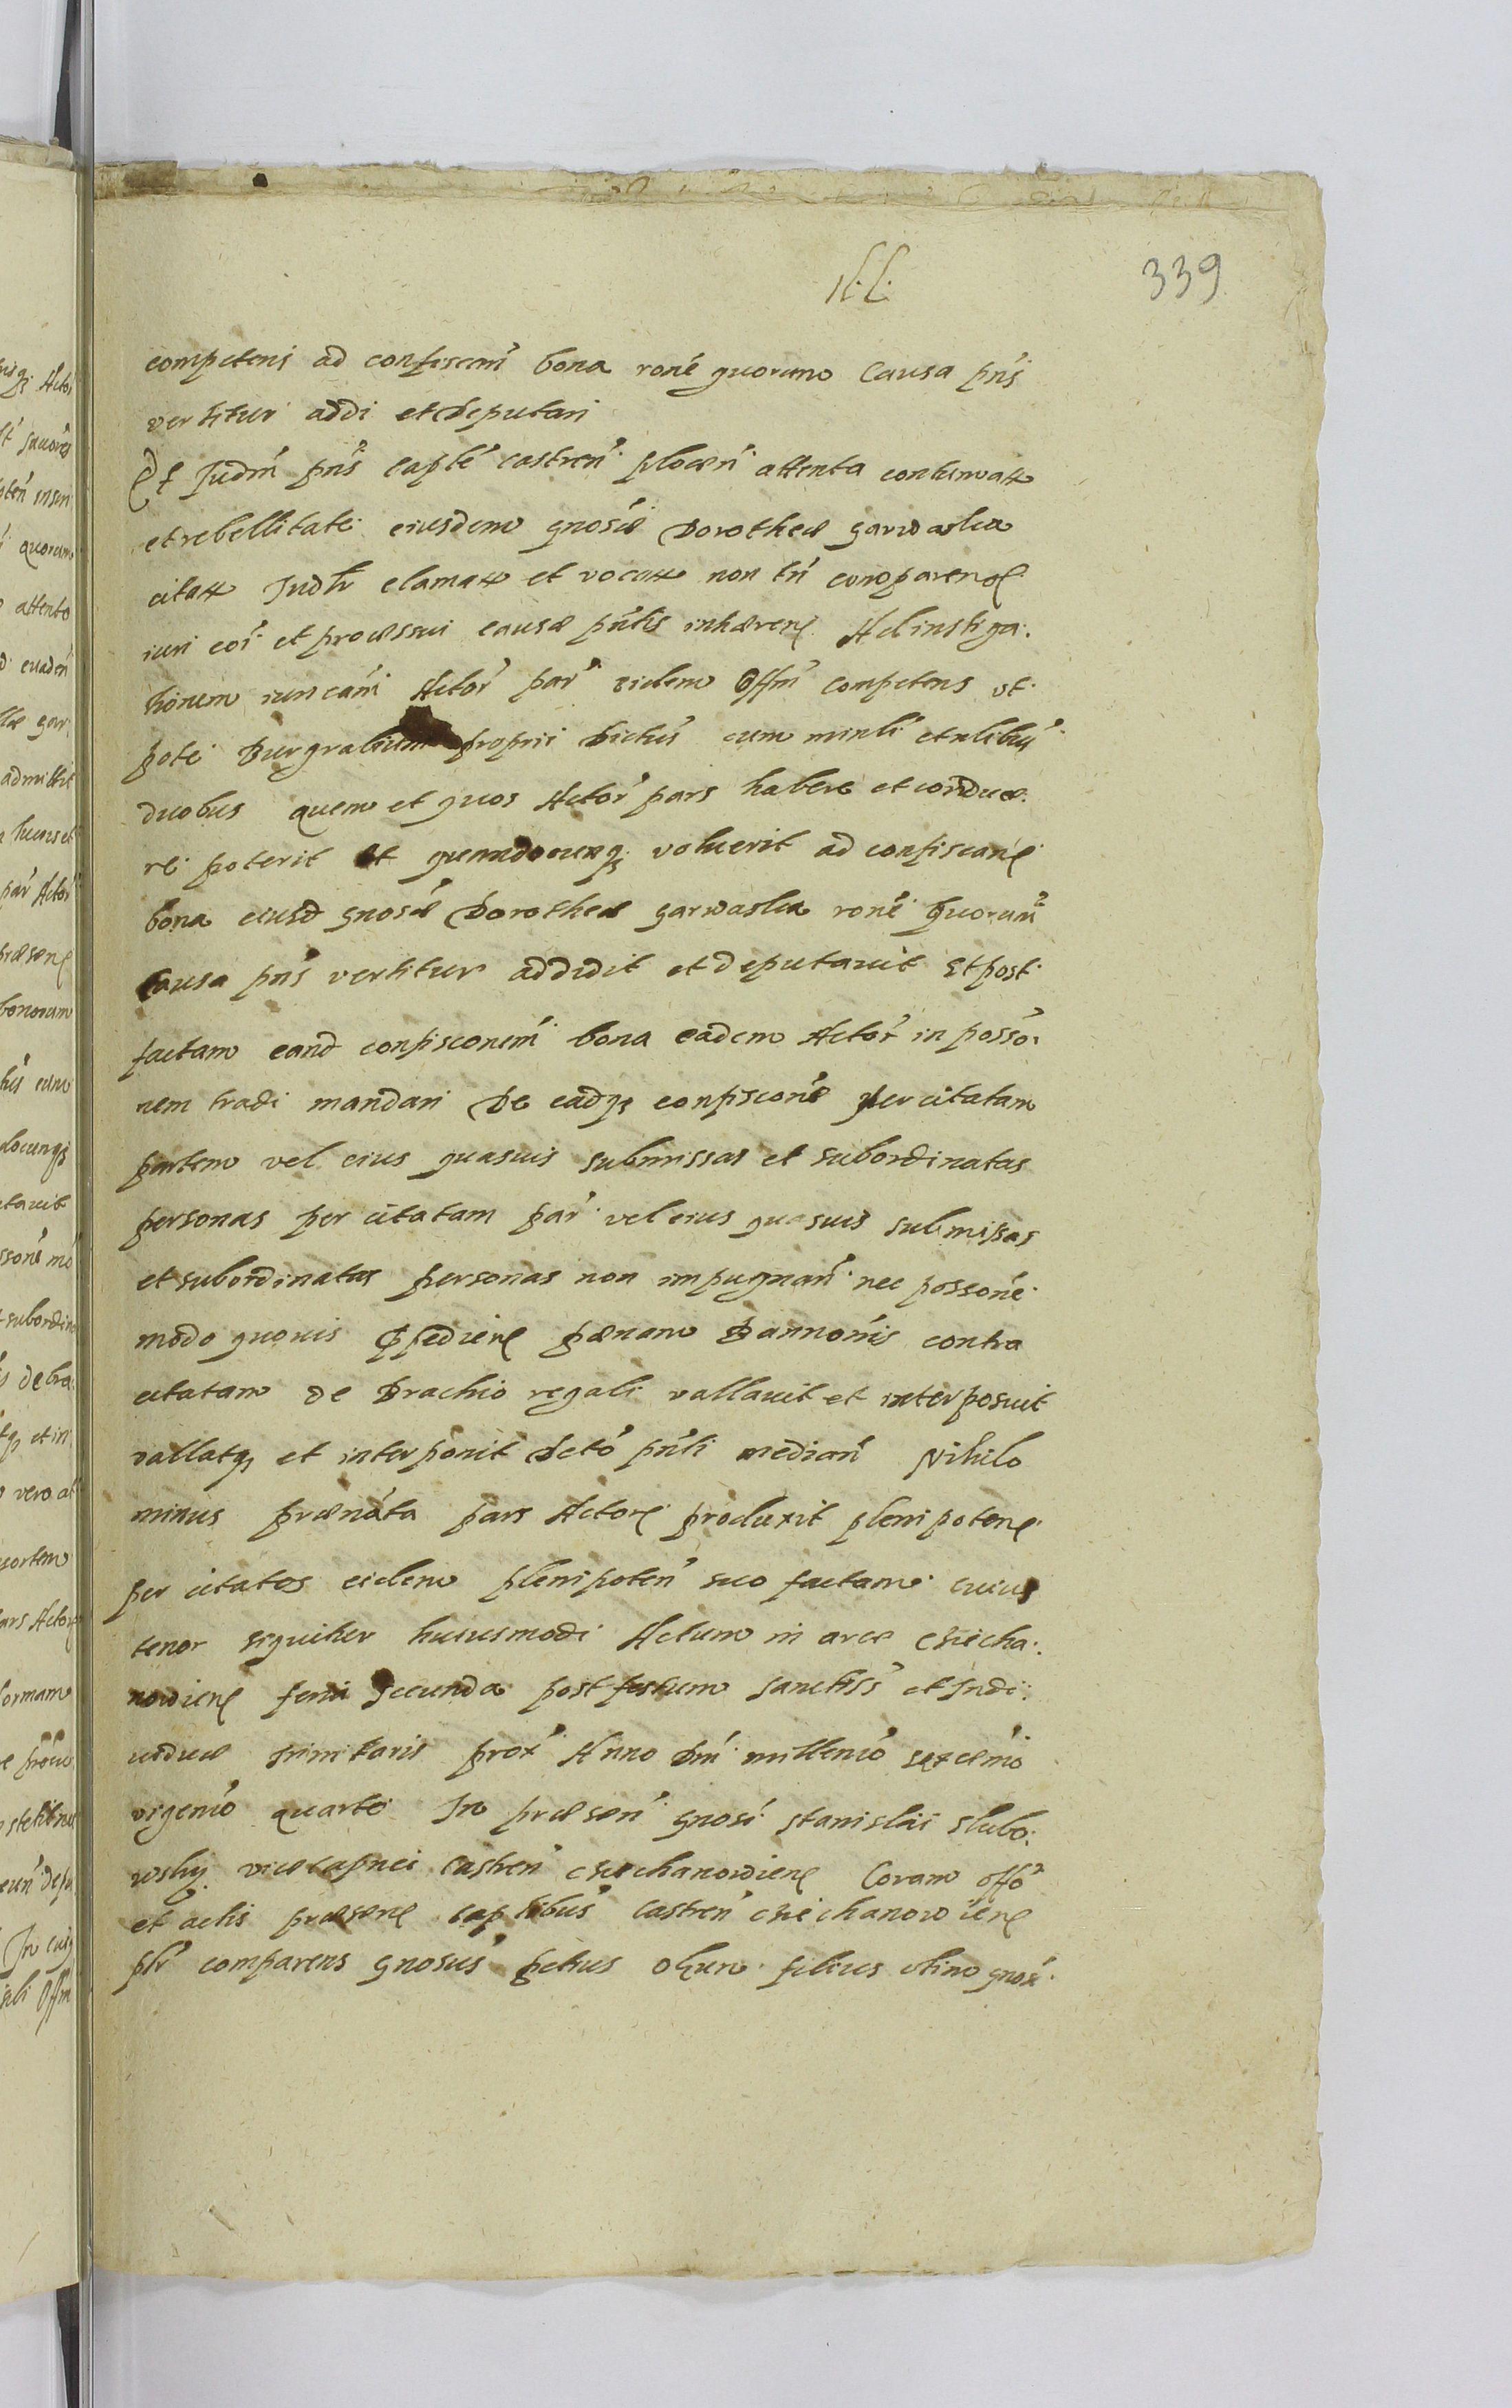 339
competens ad confiscan̄ bona rōne quorum Causa pn̄s
vertitur addi et deputari
Et Judm̄ pn̄s Caplē castren̄ plocen̄ attenta contumatt
et rebellitate eiusdem gnosæ Dorotheæ garwaska
citatt Judlr clamatt et vocatt non tn̄ comparen
iuri coī et processui causæ pn̄tis inhæren Ad instiga:
tionem iuncām Actor̄ par̄ eidem Offm̄ competens ut
pote Burgrabium proprii dictus cum minli et nlibus
duobus quem et quos Actor̄ pars habere et conduce:
re poterit et quandocunq voluerit ad confiscan
bona eiusd gnosæ Dorotheæ garwaska rōne quorum
Causa pn̄s vertitur addidit et deputauit Et post
factam eand confisconem̄ bona eadem Actor̄ in posso:
nem tradi mandari De eadq confiscone per citatam
partem vel eius quasuis submissas et subordinatas
personas per citatam par̄ vel eius quasuis submissas
et subordinatas personas non impugnan̄ nec possone
modo quouis pædien pænam Bannonis contra
citatam de Brachio regali vallauit et interposuit
vallatq et interponit Dctō pn̄ti median̄ Nihilo
minus prænāta pars Actore produxit plenipoten
per citatos eidem plenipoten̄ suo factam cuius
tenor sequitur huiusmodi Actum in arce Ciecha:
nowien feria Secunda post festum sanctiss et Indi:
uiduæ trinitatis prox̄ Anno Dni millenō sexcenō
vigenō quarto In præsen̄ gnosi stanislai slubo:
wsky vicecapnei Castren̄ Ciechanowien Coram offō
et actis præsen caplibus Castren̄ Ciechanowien
plr comparens gnosus petrus Olzum filius olim gnosi